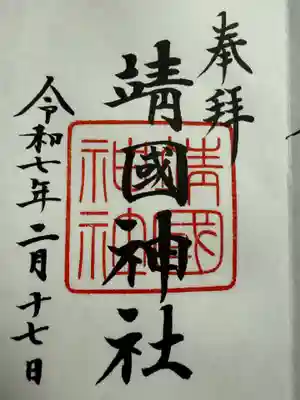 奉拝
靖國神社
令和七年二月十七日
靖國
神社